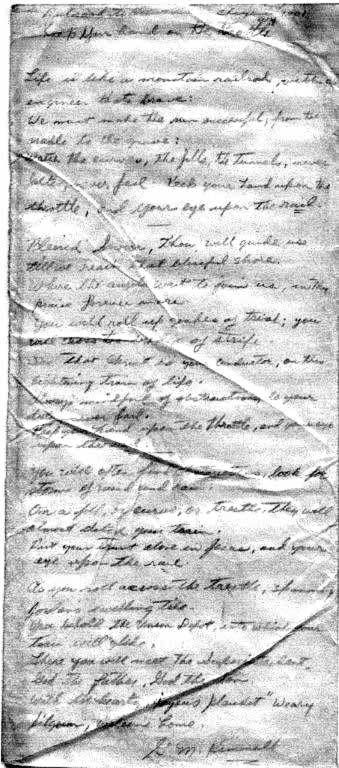 Keep your hand on the throttle
Life is like a mountain railroad, with an
engineer that's brave:
We must make the run successful, from the
cradle to the grave:
Watch the curves, the fills, the tunnels, never
falter, never fail Keep your hand upon the
throttle, and your eye upon the rail
Blessed Savior, Thou will guide us
till we reach that blissful shore.
Where the angels wait to join us, in thy
praise forever more
You will roll up grades of trial; you
will cross the of strife.
that Christ is your conductor, on this
lightning train of life.
Always mindful of obstructions, do your
duty never fail.
Keep your hand upon the throttle, and your eye
upon the rail
You will often find obstructions, look for
storms of wind and rain
On a fill, or curve, or trestle, they will
almost ditch your train.
Put your trust alone in Jesus, and your
eye upon the rail
As you roll across the trestle, spanning
Jordans swelling tide.
You behold the Union Depot, into which your
train will glide.
There you will meet the Superintendent,
God the father, God the Son
With the hearty, joyous plaudet "Weary
pilgrim, welcome home.